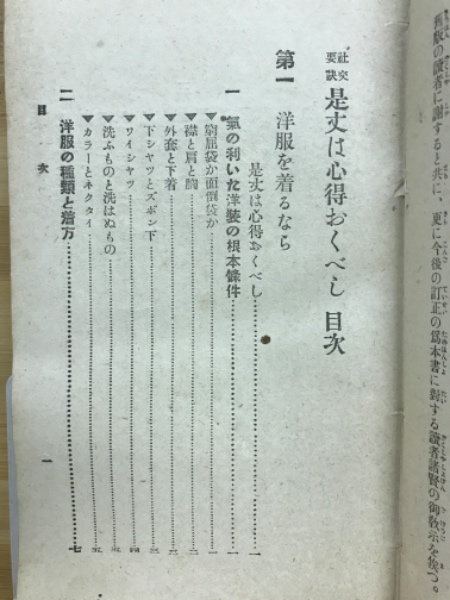 舊版の讀者に謝すると共に、更に今後の訂正の爲本書に對する讀者諸賢の御敎示を俟つ。
社交要訣 是丈は心得おくべし 目次
第一 洋服を着るなら
是丈は心得おくべし……一
一 氣の利いた洋裝の根本條件……一
▼窮屈袋か面倒袋か……一
▼襟と肩と胸……二
▼外套と下着……二
▼下シャツとズボン下……三
▼ワイシャツ……四
▼洗ふものと洗はぬもの……五
▼カラーとネクタイ……五
二 洋服の種類と着方……七
目次
一